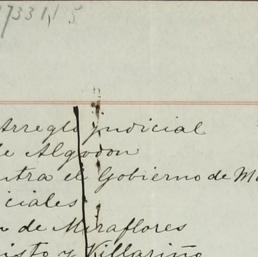 Arreglo judicial
de Algodon
ntra el Gobierno de M
iciales
n de Miraflores
isto y Villariño